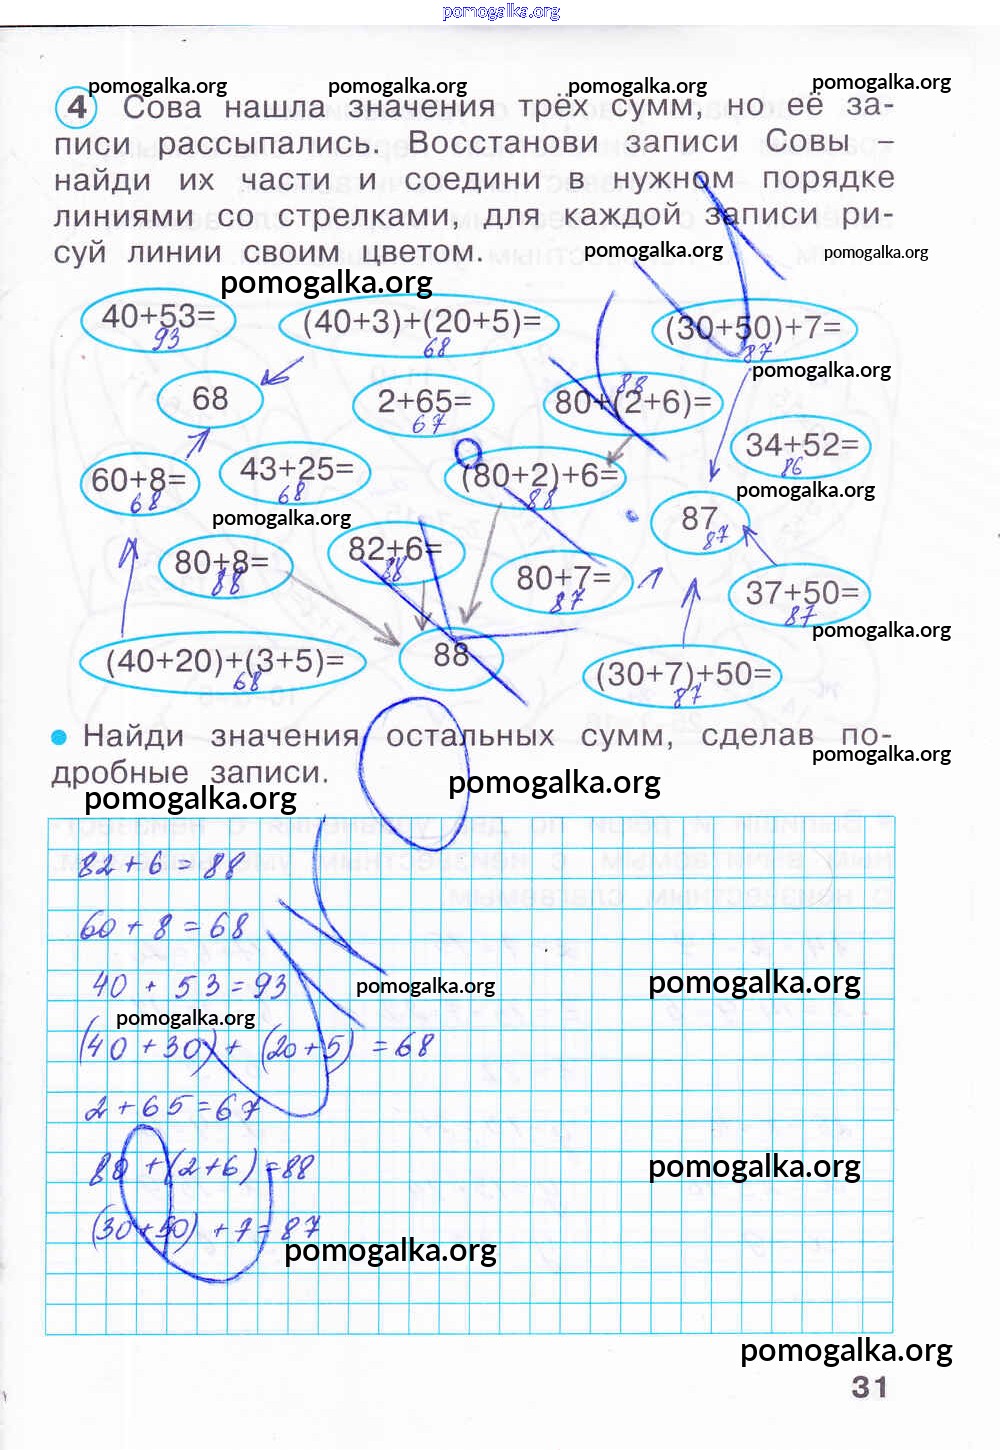 pomogalka.org
pomogalka.org pomogalka.org pomogalka.org pomogalka.org
4 Сова нашла значения трёх сумм, но её за-
писи рассыпались. Восстанови записи Совы –
найди их части и соедини в нужном порядке
линиями со стрелками, для каждой записи ри-
суй линии своим цветом.
pomogalka.org pomogalka.org
pomogalka.org
40+53= 93
(40+3)+(20+5)= 68
(30+50)+7= 87
pomogalka.org
68
2+65= 67
80+(2+6)= 88
34+52= 86
60+8= 68
43+25= 68
(80+2)+6= 88
pomogalka.org
87 87
pomogalka.org
80+8= 88
82+6= 88
80+7= 87
37+50= 87
pomogalka.org
(40+20)+(3+5)= 68
88
(30+7)+50= 87
Найди значения остальных сумм, сделав по-
дробные записи.
pomogalka.org
pomogalka.org pomogalka.org
82+6=88
60+8=68
40+53=93
pomogalka.org pomogalka.org
pomogalka.org
(40+30)+(20+5)=68
2+65=67
80+(2+6)=88
pomogalka.org
(30+50)+7=87
pomogalka.org
pomogalka.org
31